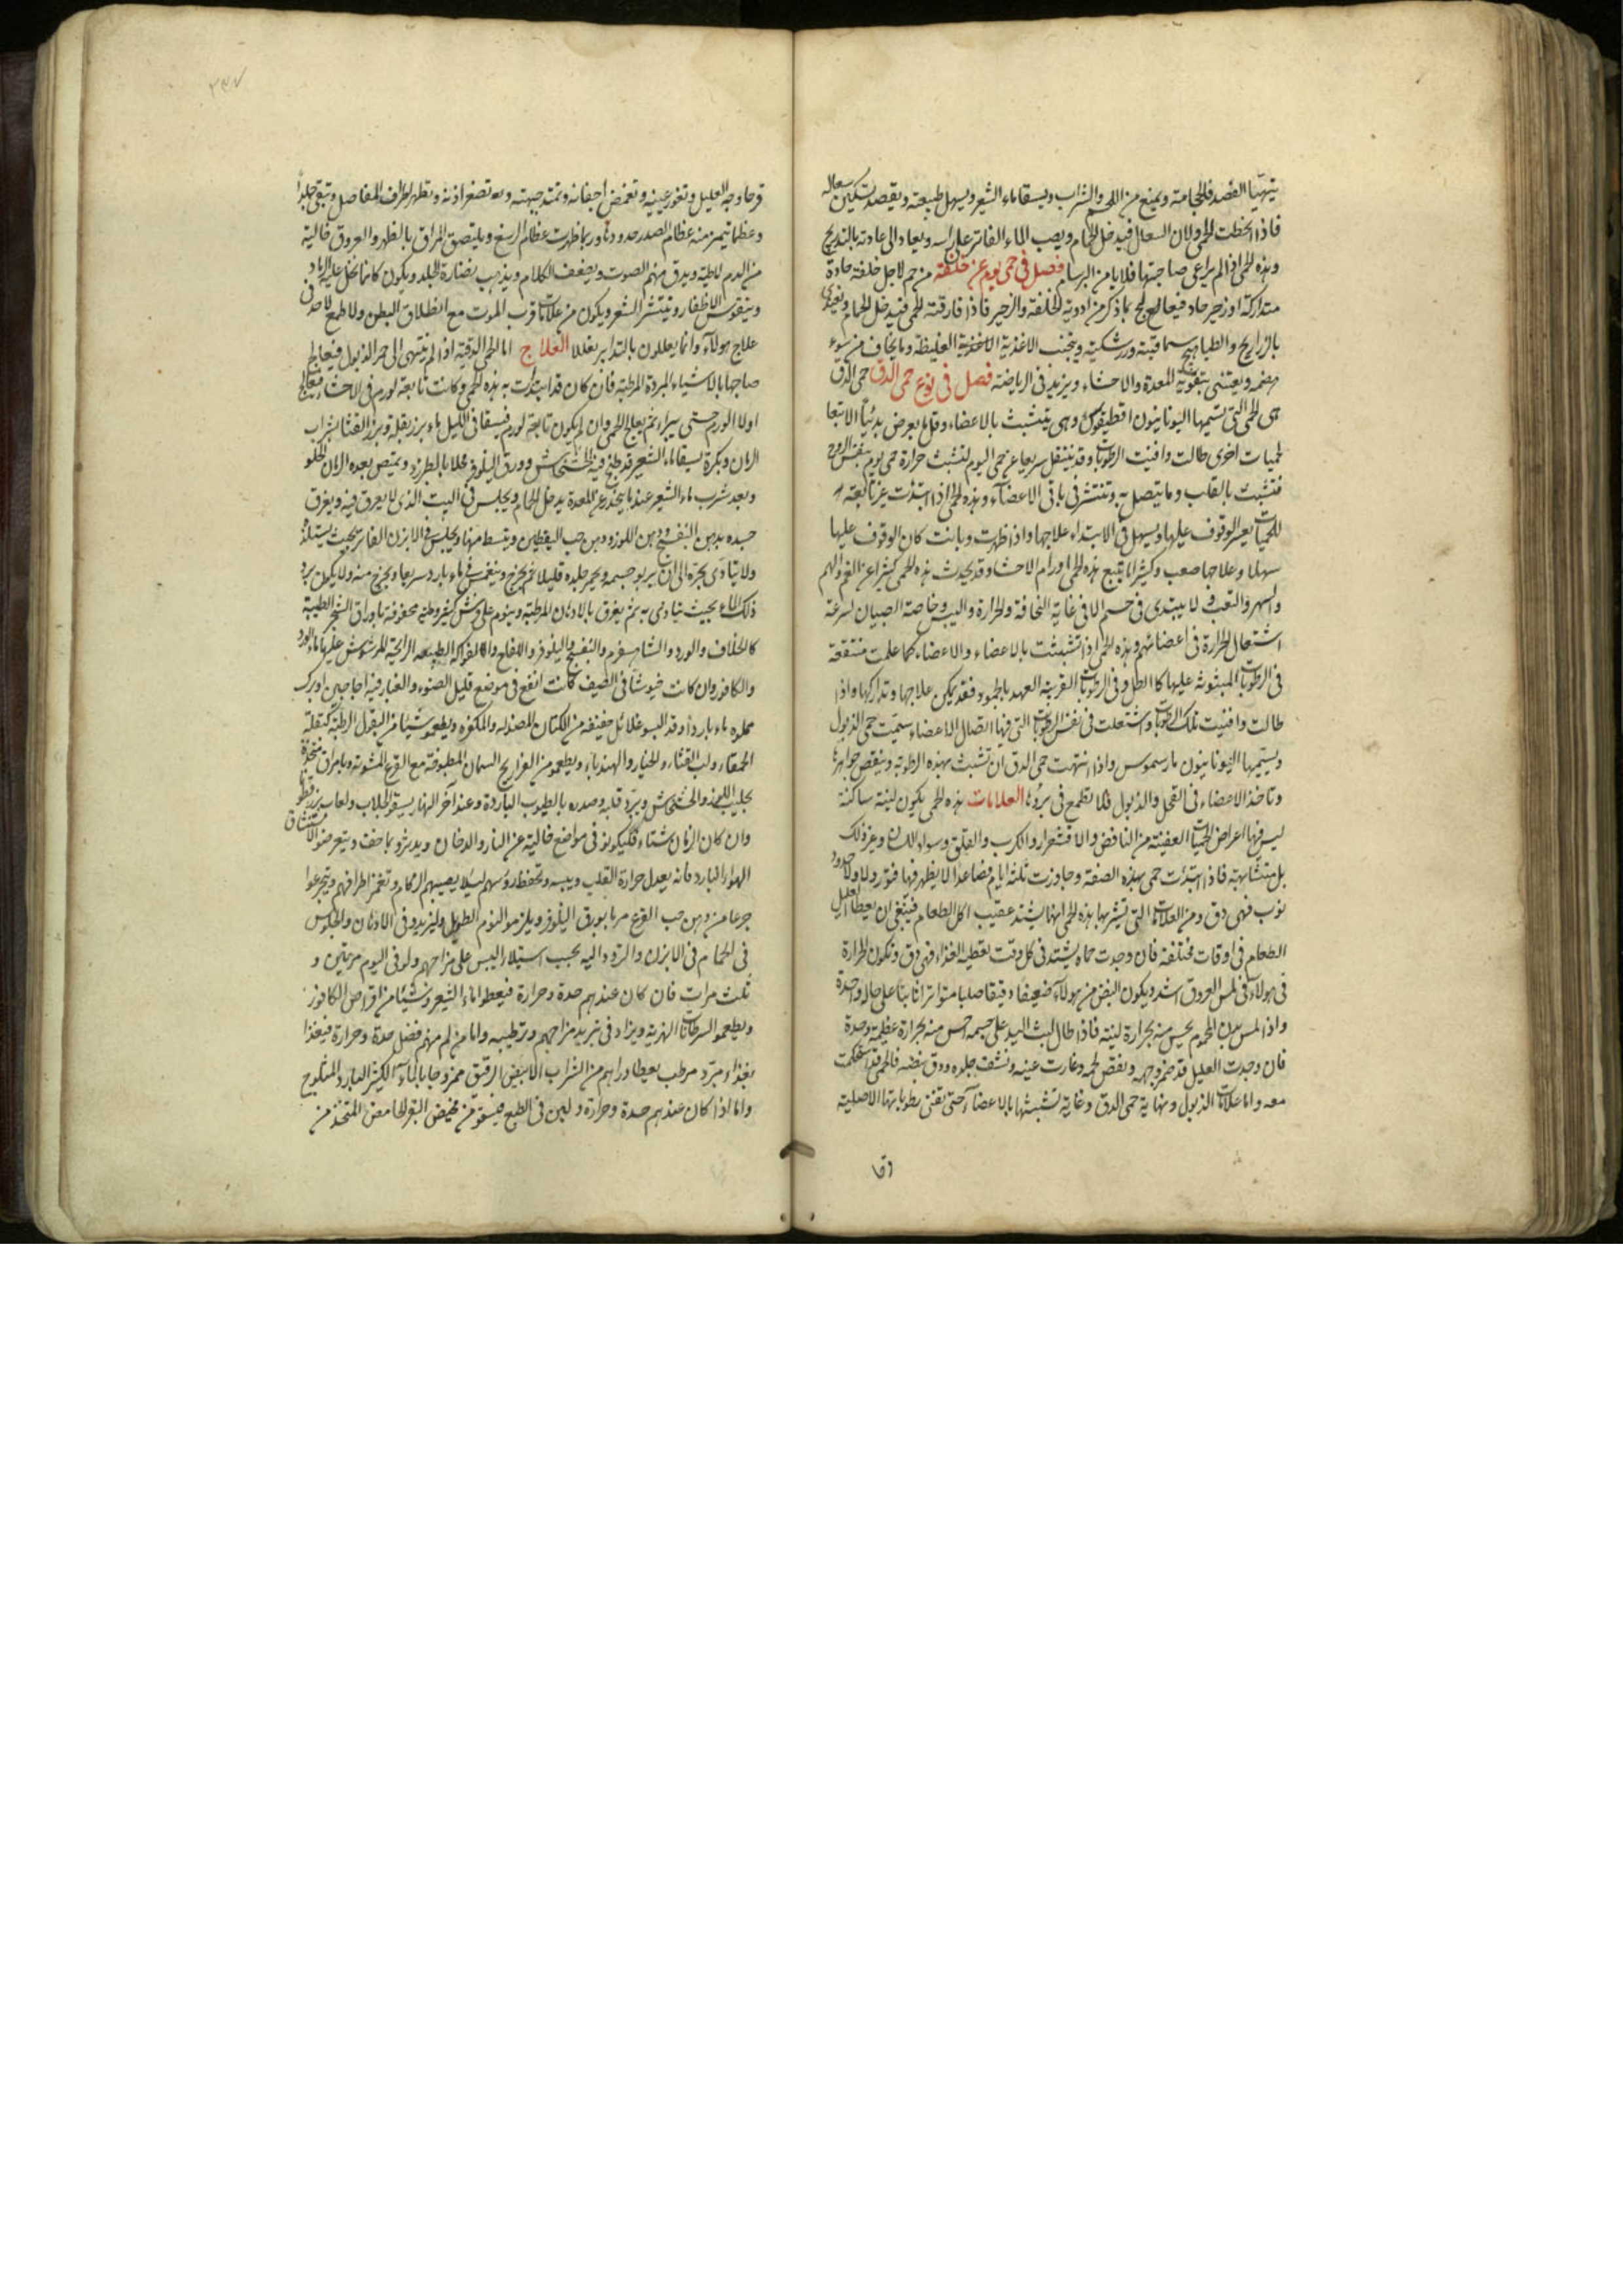 يتهيّأ الفصد فالحجامة ويمنع من اللحم والشراب ويسقا ماء الشعير ويسهل طبيعته ويقصد تسكين سعاله
فاذا انحطت الحمى ولان السعال فيدخل الحمام ويصب الماء الفاتر على راسه ويعاد الى عادته بالتدريج
وهذه الحمى اذا لم يراعى صاحبها فلا يامن البرسام فصل فى حمى يوم عن خلفة من حم لاجل خلفة حادة
متداركة او زحير حاد فيعالج بما ذكر من ادوية الخلفة والزحير فاذا فارقته الحمى فيدخل الحمام ويغذى
بالدراريج والطياهيج سماقية وزرشكية ويتجنب الاغذية الغليظة وما يخاف من سوء
هضمه ويعتنى بتقوية المعدة والاحشاء ويزيد فى الرياضة فصل فى نوع حمى الدق حمى الدق
هى الحمى التى يسميها اليونانيون اقطيقوس وهى يتشبث بالاعضاء وقل ما يعرض بدئيا الا تبعا
لحميات اخرى طالت وافنيت الرطوبات وقد ينتقل سريعا عن حمى اليوم لتشبث حرارة حمى يوم بنفس الروح
فتشبث بالقلب وما يتصل به وتنتشر فى باقى الاعضاء وهذه الحمى اذا ابتدئت غير تابعة
للحميات يعسر الوقوف عليها ويسهل فى الابتداء علاجها واذا ظهرت وبانت كان الوقوف عليها
سهلا وعلاجها صعب وكثيرا ما يتبع هذه الحمى اورام الاحشا وقد يحدث هذه الحمى كثيرا عن الغم والهم
والسهر والتعب ولا يبتدى فى جسم الا فى غاية النحافة والحرارة واليبس وخاصة الصبيان لسرعة
اشتعال الحرارة فى اعضائهم وهذه الحمى اذا تشبثت بالاعضاء والاعضاء كما علمت منتقعة
فى الرطوبات المبثوثة عليها كالطل وفى الرطوبات القريبة العهد بالجمود فقد يمكن علاجها وتداركها واذا
طالت وافنيت تلك الرطوبات واشتعلت فى نفس الرطوبات التى فيها اتصال الاعضاء سميت حمى الذبول
ويسميها اليونانيون مارسموس واذا انتهت حمى الدق ان تشبث بهذه الرطوبة وينقص جواهرها
وتاخذ الاعضاء فى القحل والذبول فلا تطمع فى برؤها العلامات هذه الحمى يكون لينة ساكنة
ليس فيها اعراض الحميات العفينة من النافض والاقشعرار والكرب والقلق وسواد اللسان وغير ذلك
بل متشابهة فاذا ابتدئت حمى بهذه الصفة وجاوزت ثلثة ايام فصاعدا لا يظهر فيها فتور ولا ولا حدود
نوب فهى دق ومن العلامات التى تستشير بها هذه الحمى انها يشتد عقيب اكل الطعام فينبغى ان يعطا العليل
الطعام فى اوقات مختلفة فان وجدت حماه يشتد فى كل وقت تعطيه الغذاء فهى دق وتكون الحرارة
فى هولاء فى لمس العروق اشد ويكون النبض من هولاء ضعيفا دقيقا صلبا متواترا ثابتا على حال واحدة
واذا لمس بدن المحموم يحس منه بحرارة لينة فاذا طال لبث اليد على جسمه احس منه بحرارة عظيمة وحدة
فان وجدت العليل قد ضمر وجهه ونقص لحمه وغارت عينه ونشف جلده ودق نبضه فالحمى قد استحكمت
معه واما علامات الذبول ونهاية حمى الدق وغاية تشبثها بالاعضاء حتى تفنى رطوباتها الاصلية
وقا
قرحا وجه العليل وتغور عينيه وتغمض اجفانه وتمتد جبهته وتصغر اذنه وتظهر اطراف المفاصل وتبقى جلدا
وعظما يتميز منه عظام الصدر حدودها وربما ظهرت عظام الرسغ ويلتصق المراق بالظهر والعروق خالية
من الدم لاطية ويدق منهم الصوت ويضعف الكلام ويذهب نضارة الجلد ويكون كانما نخل عليه الرماد
ويتقوس الاظفار وينتشر الشعر ويكون من علامات قرب الموت مع انطلاق البطن ولا طمع لاحد فى
علاج هولاء وانما يعللون بالتدابير تعللا العلاج اما الحمى الدقية اذا لم ينتهى الى حد الذبول فيعالج
صاحبها بالاشياء المبردة المرطبة فان كان قد ابتدئت به هذه الحمى وكانت تابعة لورم فى الاحشاء فيعالج
اولا الورم حتى يبراء ثم يعالج الحمى وان لم يكون تابعة لورم فيسقا فى الليل ماء بزر بقلة وبزر القثا بشراب
الرمان وبكرة يسقا ماء الشعير قد طبخ فيه الخشخاش وورق النيلوفر محلا بالطبرزد ويمتص بعده الرمان الحلو
وبعد شرب ماء الشعير عند ما ينحدر عن المعدة يدخل الحمام ويجلس فى البيت الذى لا يعرق فيه ويغرق
جسده بدهن البنفسج ودهن اللوز ودهن حب اليقطين وينبسط منها ويجلس فى الابزن الفاتر بحيث يستلذه
ولا يتاذى بحره الى ان يربو جسمه ويحمر جلده قليلا ثم يخرج وينغمس فى ماء بارد سريعا ويخرج منه ولا يكون برد
ذلك الماء بحيث يتاذى به ثم يغرق بالادهان المرطبة وينوم على فرش كثير وطئه محفوفة باوراق الشجر الطيبة
كالخلاف والورد والشاهسفرم والبنفسج والنيلوفر والتفاح والفواكه الطيبة الرائحة المرشوش عليها ماء الورد
والكافور وان كانت خيوشا فى الصيف كانت انفع فى موضع قليل الضوء والغبار فيه اجاجين او برك
مملوه ماء باردا وقد البسو غلائل خفيفه من الكتان المصندله والمكفره ويطعموا شيئا من البقول الرطبة كبقلة
الحمقاء ولب القثاء والخيار والهندباء ويطعمو من الفراريج السمان المطبوخة مع القرع المشوية وبامراق متخذة
بحليب اللوز والخشخاش ويبرد قلبه وصدره بالطيوب الباردة وعند آخر النهار يسقو الجلاب ولعاب بزر قطونا
وان كان الزمان شتاء فليكونو فى مواضع خالية عن النار والدخان ويدثرو بما خف ويتعرضو لاستنشاق
الهواء البارد فانه يعدل حرارة القلب ويبسه وتحفظ رؤسهم لئلا يصيبهم الزكام وتغمز اطرافهم ويتجرعوا
جرعا من دهن حب القرع مربا بورق النيلوفر ويلزمو النوم الطويل وليزيدو فى الادهان والجلوس
فى الحمام فى الابزن والتردد اليه بحسب استيلاء اليبس على مزاجهم ولو فى اليوم مرتين و
ثلث مرات فان كان عندهم حدة وحرارة فيعطوا ماء الشعير وشيئا من اقراص الكافور
ويطعمو السرطانات النهرية ويزاد فى تبريد مزاجهم وترطيبه واما من لم منهم فضل حدة وحرارة فيغذا
بغذاء مبرد مرطب يعطا دراهم من الشراب الابيض الرقيق ممزوجا بالماء الكثير البارد المثلوج
واما اذا كان عندهم حدة وحرارة ولين فى الطبع فيسقو من مخيض البقر الحامض المتخذ من